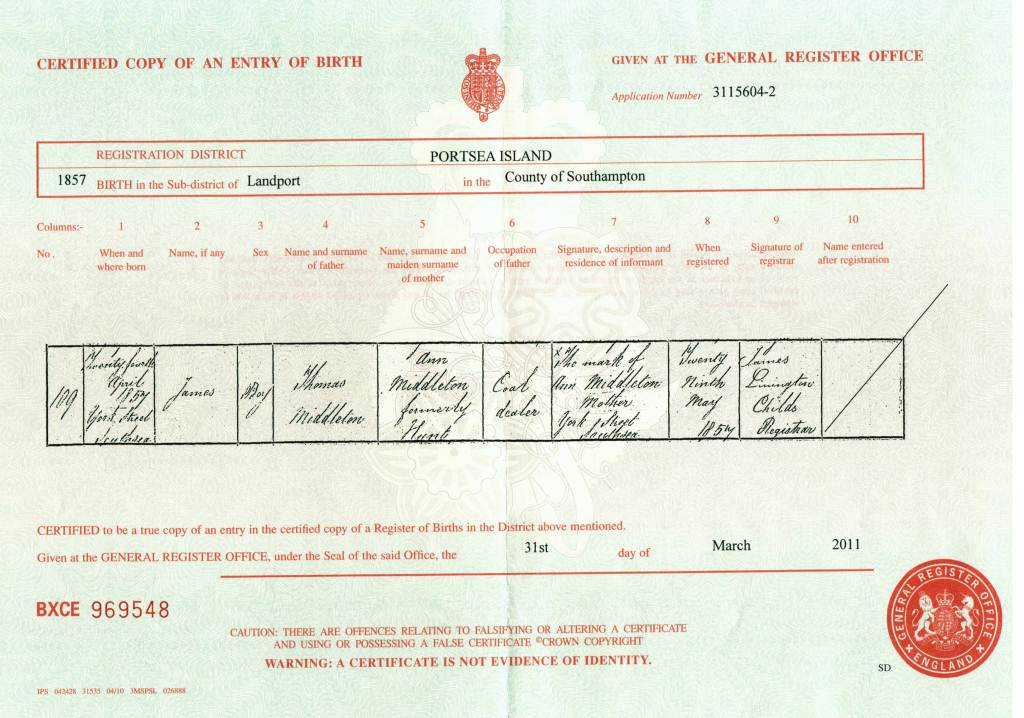 CERTIFIED COPY OF AN ENTRY OF BIRTH
GIVEN AT THE GENERAL REGISTER OFFICE
Application Number 3115604-2
REGISTRATION DISTRICT PORTSEA ISLAND
1857 BIRTH in the Sub-district of Landport in the County of Southampton
Columns:- 1 2 3 4 5 6 7 8 9 10
No. When and where born Name, if any Sex Name and surname of father Name, surname and maiden surname of mother Occupation of father Signature, description and residence of informant When registered Signature of registrar Name entered after registration
109
Twenty fourth
April
1857
York Street
Southsea
James
Boy
Thomas
Middleton
Ann
Middleton
formerly
Hunt
Coal
dealer
X The mark of
Ann Middleton
Mother
York Street
Southsea
Twenty
Ninth
May
1857
James
Linington
Childs
Registrar
CERTIFIED to be a true copy of an entry in the certified copy of a Register of Births in the District above mentioned.
Given at the GENERAL REGISTER OFFICE, under the Seal of the said Office, the 31st day of March 2011
BXCE 969548
CAUTION: THERE ARE OFFENCES RELATING TO FALSIFYING OR ALTERING A CERTIFICATE
AND USING OR POSSESSING A FALSE CERTIFICATE ©CROWN COPYRIGHT
WARNING: A CERTIFICATE IS NOT EVIDENCE OF IDENTITY.
GENERAL REGISTER OFFICE
ENGLAND
SD
IPS 042428 31535 04/10 3MSPSL 026888